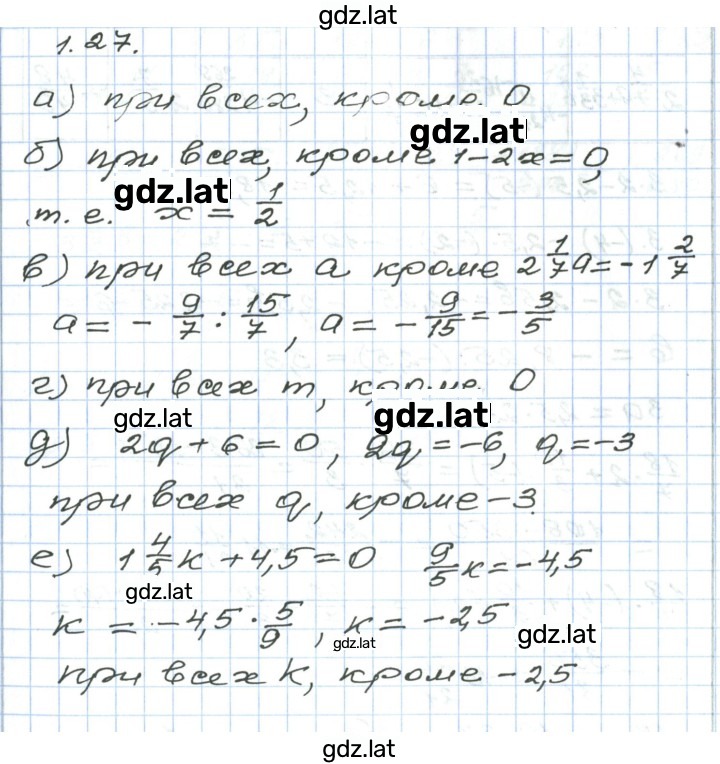 gdz.lat
1.27.
а) при всех, кроме 0
gdz.lat
б) при всех, кроме 1-2x=0,
gdz.lat
т. е. x = 1/2
в) при всех a кроме 2 1/7 a = -1 2/7
a = - 9/7 : 15/7, a = - 9/15 = - 3/5
г) при всех m, кроме 0
gdz.lat gdz.lat
д) 2q + 6 = 0, 2q = -6, q = -3
при всех q, кроме -3
е) 1 4/5 к + 4,5 = 0 9/5 к = -4,5
gdz.lat
к = -4,5 · 5/9, к = -2,5
gdz.lat gdz.lat
при всех k, кроме -2,5
gdz.lat